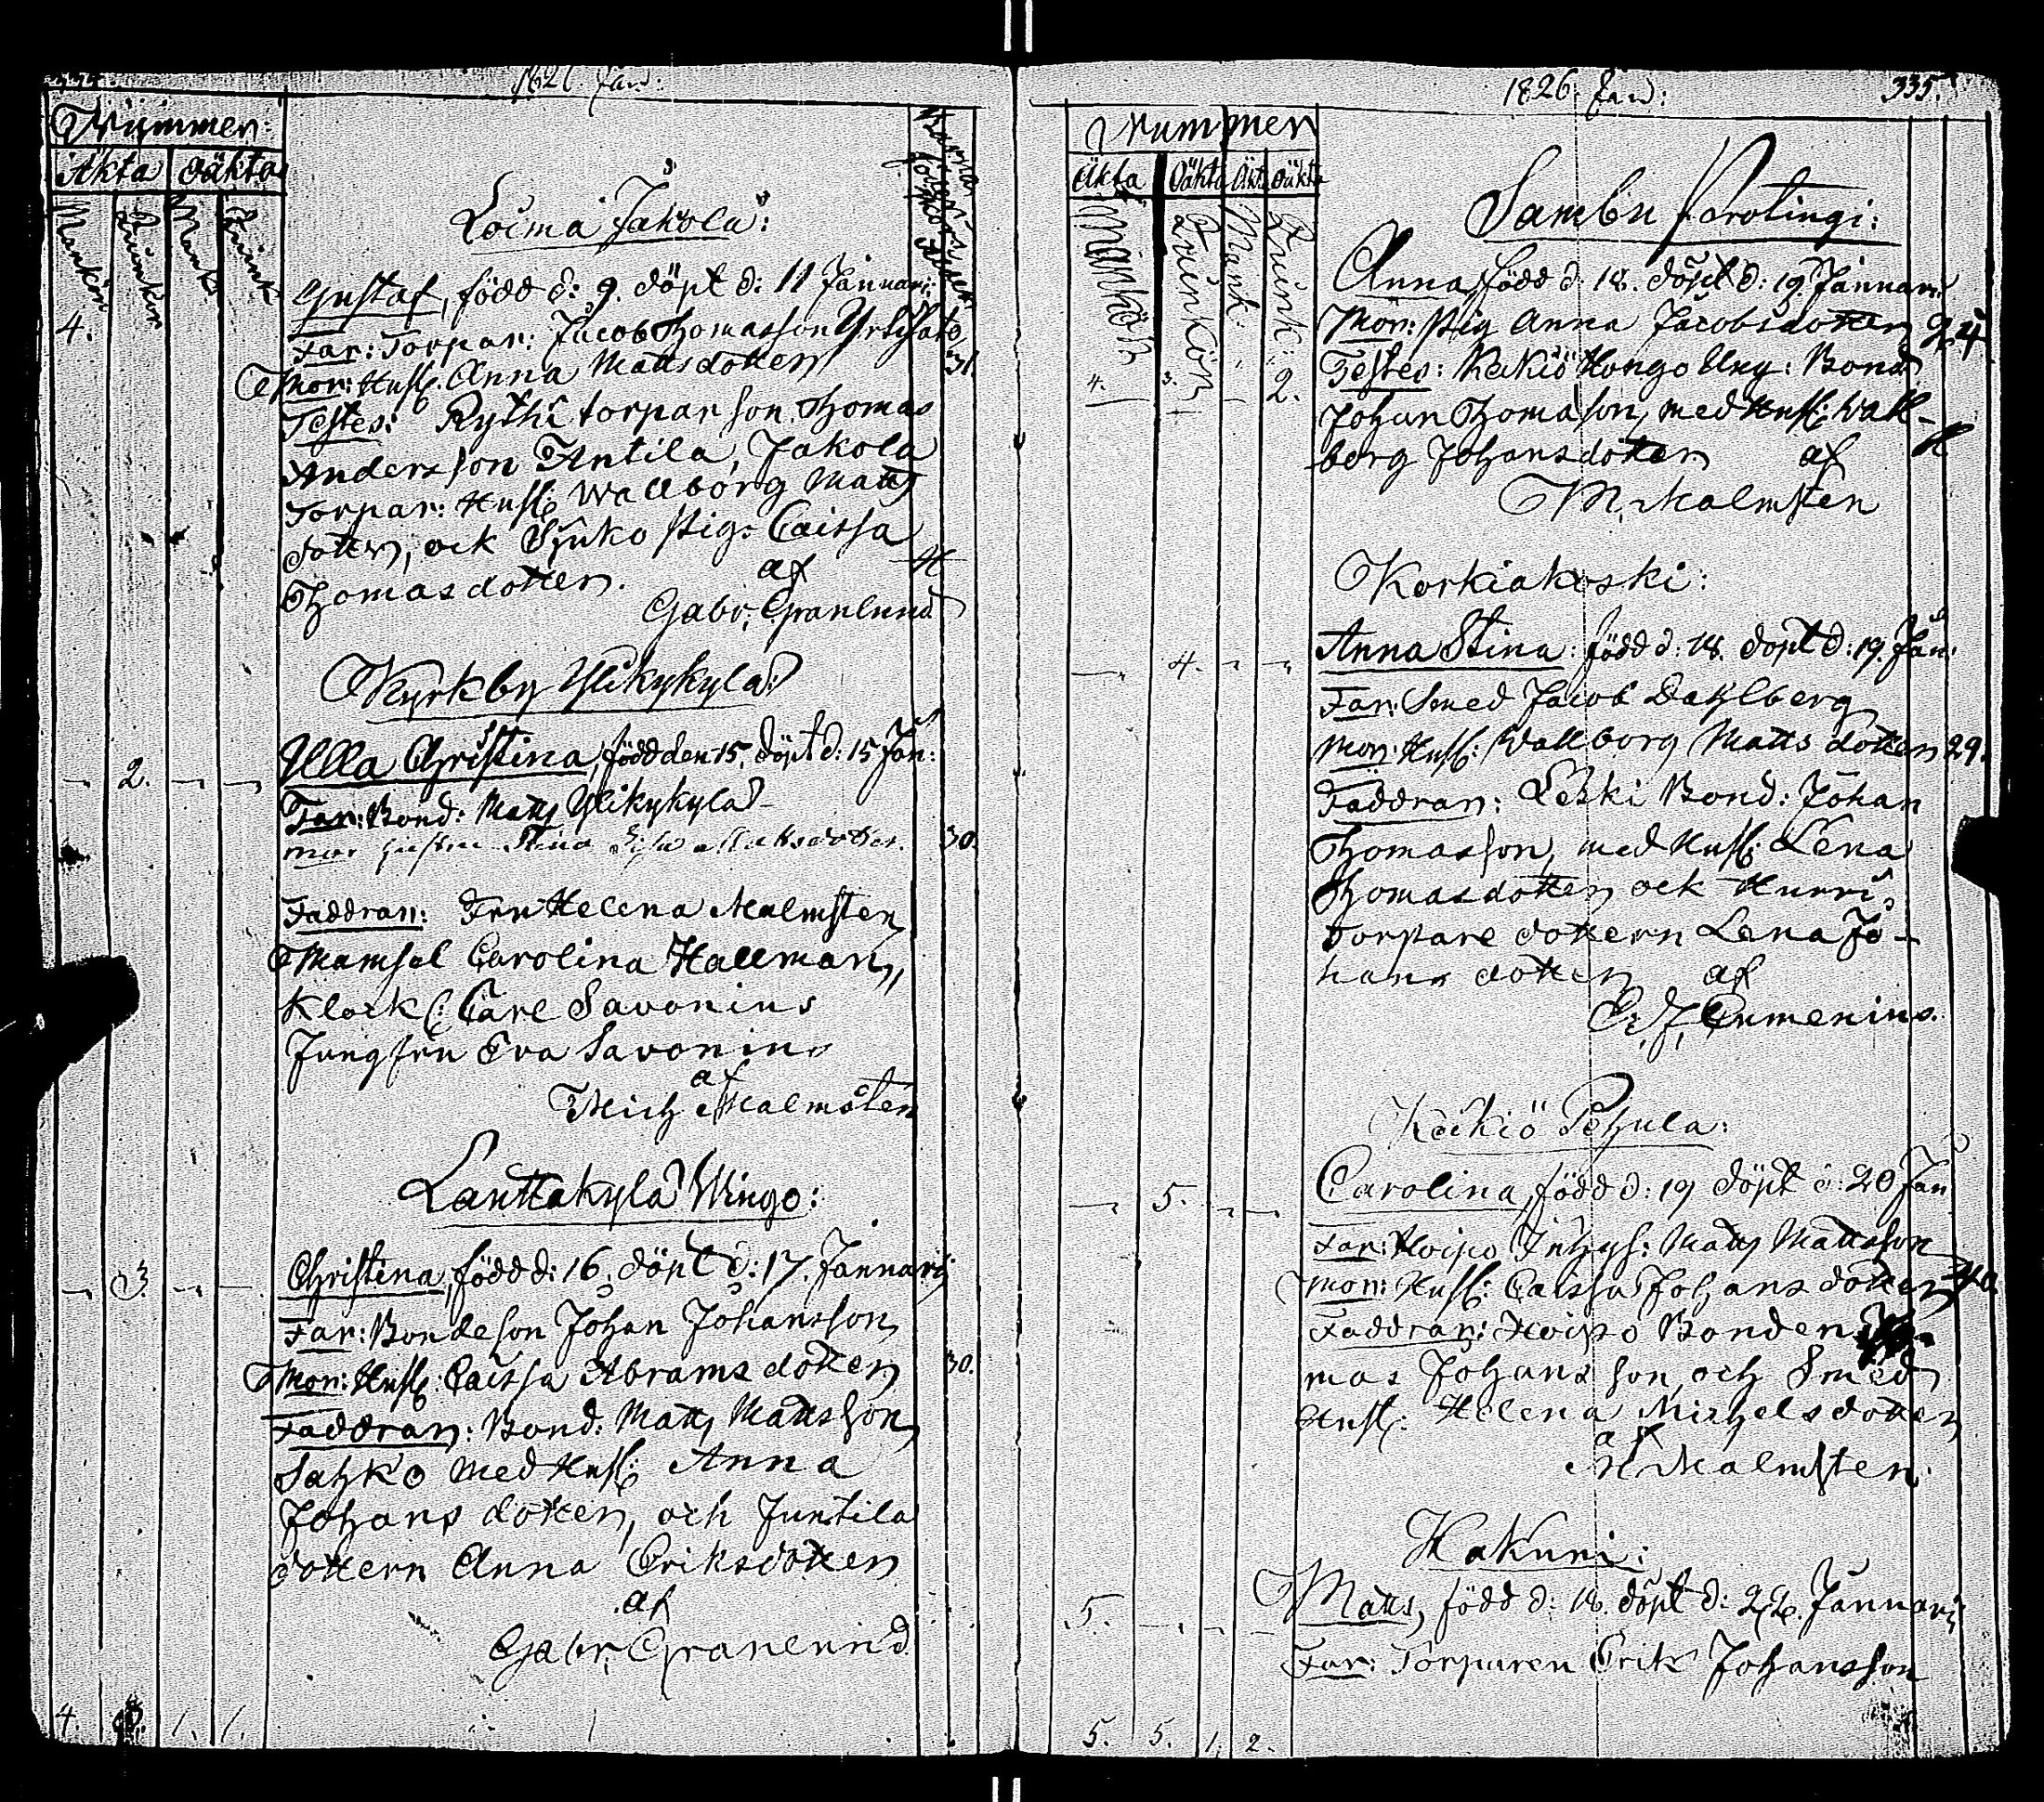 1826 Jan:
Nummer:
Äkta oäkta
Mankön
Quinkön
Mank:
Quink:
Loima Jakola:
Gustaf, född d: 9. döpt d: 11 Januari:
4.
Far: Torpar: Jacob Thomasson
Mor: Hust: Anna Mattsdotter
31.
Testes: Rythi torpar son Thomas
Andersson Antila, Jakola
Torpar: Hust: Wallborg Matts
dotter, ock pig: Caissa
Thomasdotter. af
Gabr: Granlund
Kyrkby Ylikykylä:
Ulla Christina, född den 15. döpt d: 15 Jan:
2.
Far: Bond: Matts Ylikykylä
mor hustru Stina Mattsdotter.
30.
Faddrar: Fru Helena Malmsten
Mamsel Carolina Hallman,
Klock: Carl Savonius
Jungfru Eva Savonius
af
Mich Malmsten
Lauttakylä Wingo:
Christina, född d: 16. döpt d: 17. Januarij
3.
Far: Bondeson Johan Johansson
Mor: Hust: Caissa Abramsdotter
30.
Faddrar: Bond: Matts Mattsson
Sahko med Hust: Anna
Johansdotter, och Juntila
dottern Anna Eriksdotter
af
Gabr: Granlund
4. 3. 1. 1.
1826 Jan:
335.
Nummer
Äkta Oäkta Äkt oäkta
Mankön
Quinkön
Mank:
Quink:
4. 3. 2.
Sambu Parolingi:
Anna, född d: 18. döpt d: 19. Januari
Mor: Pig Anna Jacobsdotter 24
Testes: Keikiö Hongo Ung: Bond
Johan Thomasson, med Hust: Wall-
borg Johansdotter af
M. Malmsten
Korkiakoski:
Anna Stina: född d: 18. döpt d: 19. Jan:
4.
Far: Smed Jacob Dahlberg
Mor: Hust: Wallborg Mattsdotter 29.
Faddrar: Leski Bond: Johan
Thomasson, med Hust: Lena
Thomasdotter ock Hurri
torpare dottern Lena Jo-
hans dotter af
Keikiö Pehula:
Carolina, född d: 19 döpt d: 20 Jan
5.
Far: Hoipo Inhys: Matts Mattsson
Mor: Hust: Caissa Johansdotter 40.
Faddrar: Hoipo Bonden
mas Johansson, och Smed
Hust: Helena Michelsdotter
af
M. Malmsten.
Hakuni:
Matts, född d: 18. döpt d: 22. Januarij
5.
Far: Torparen Erik Johansson
5. 5. 1. 2.